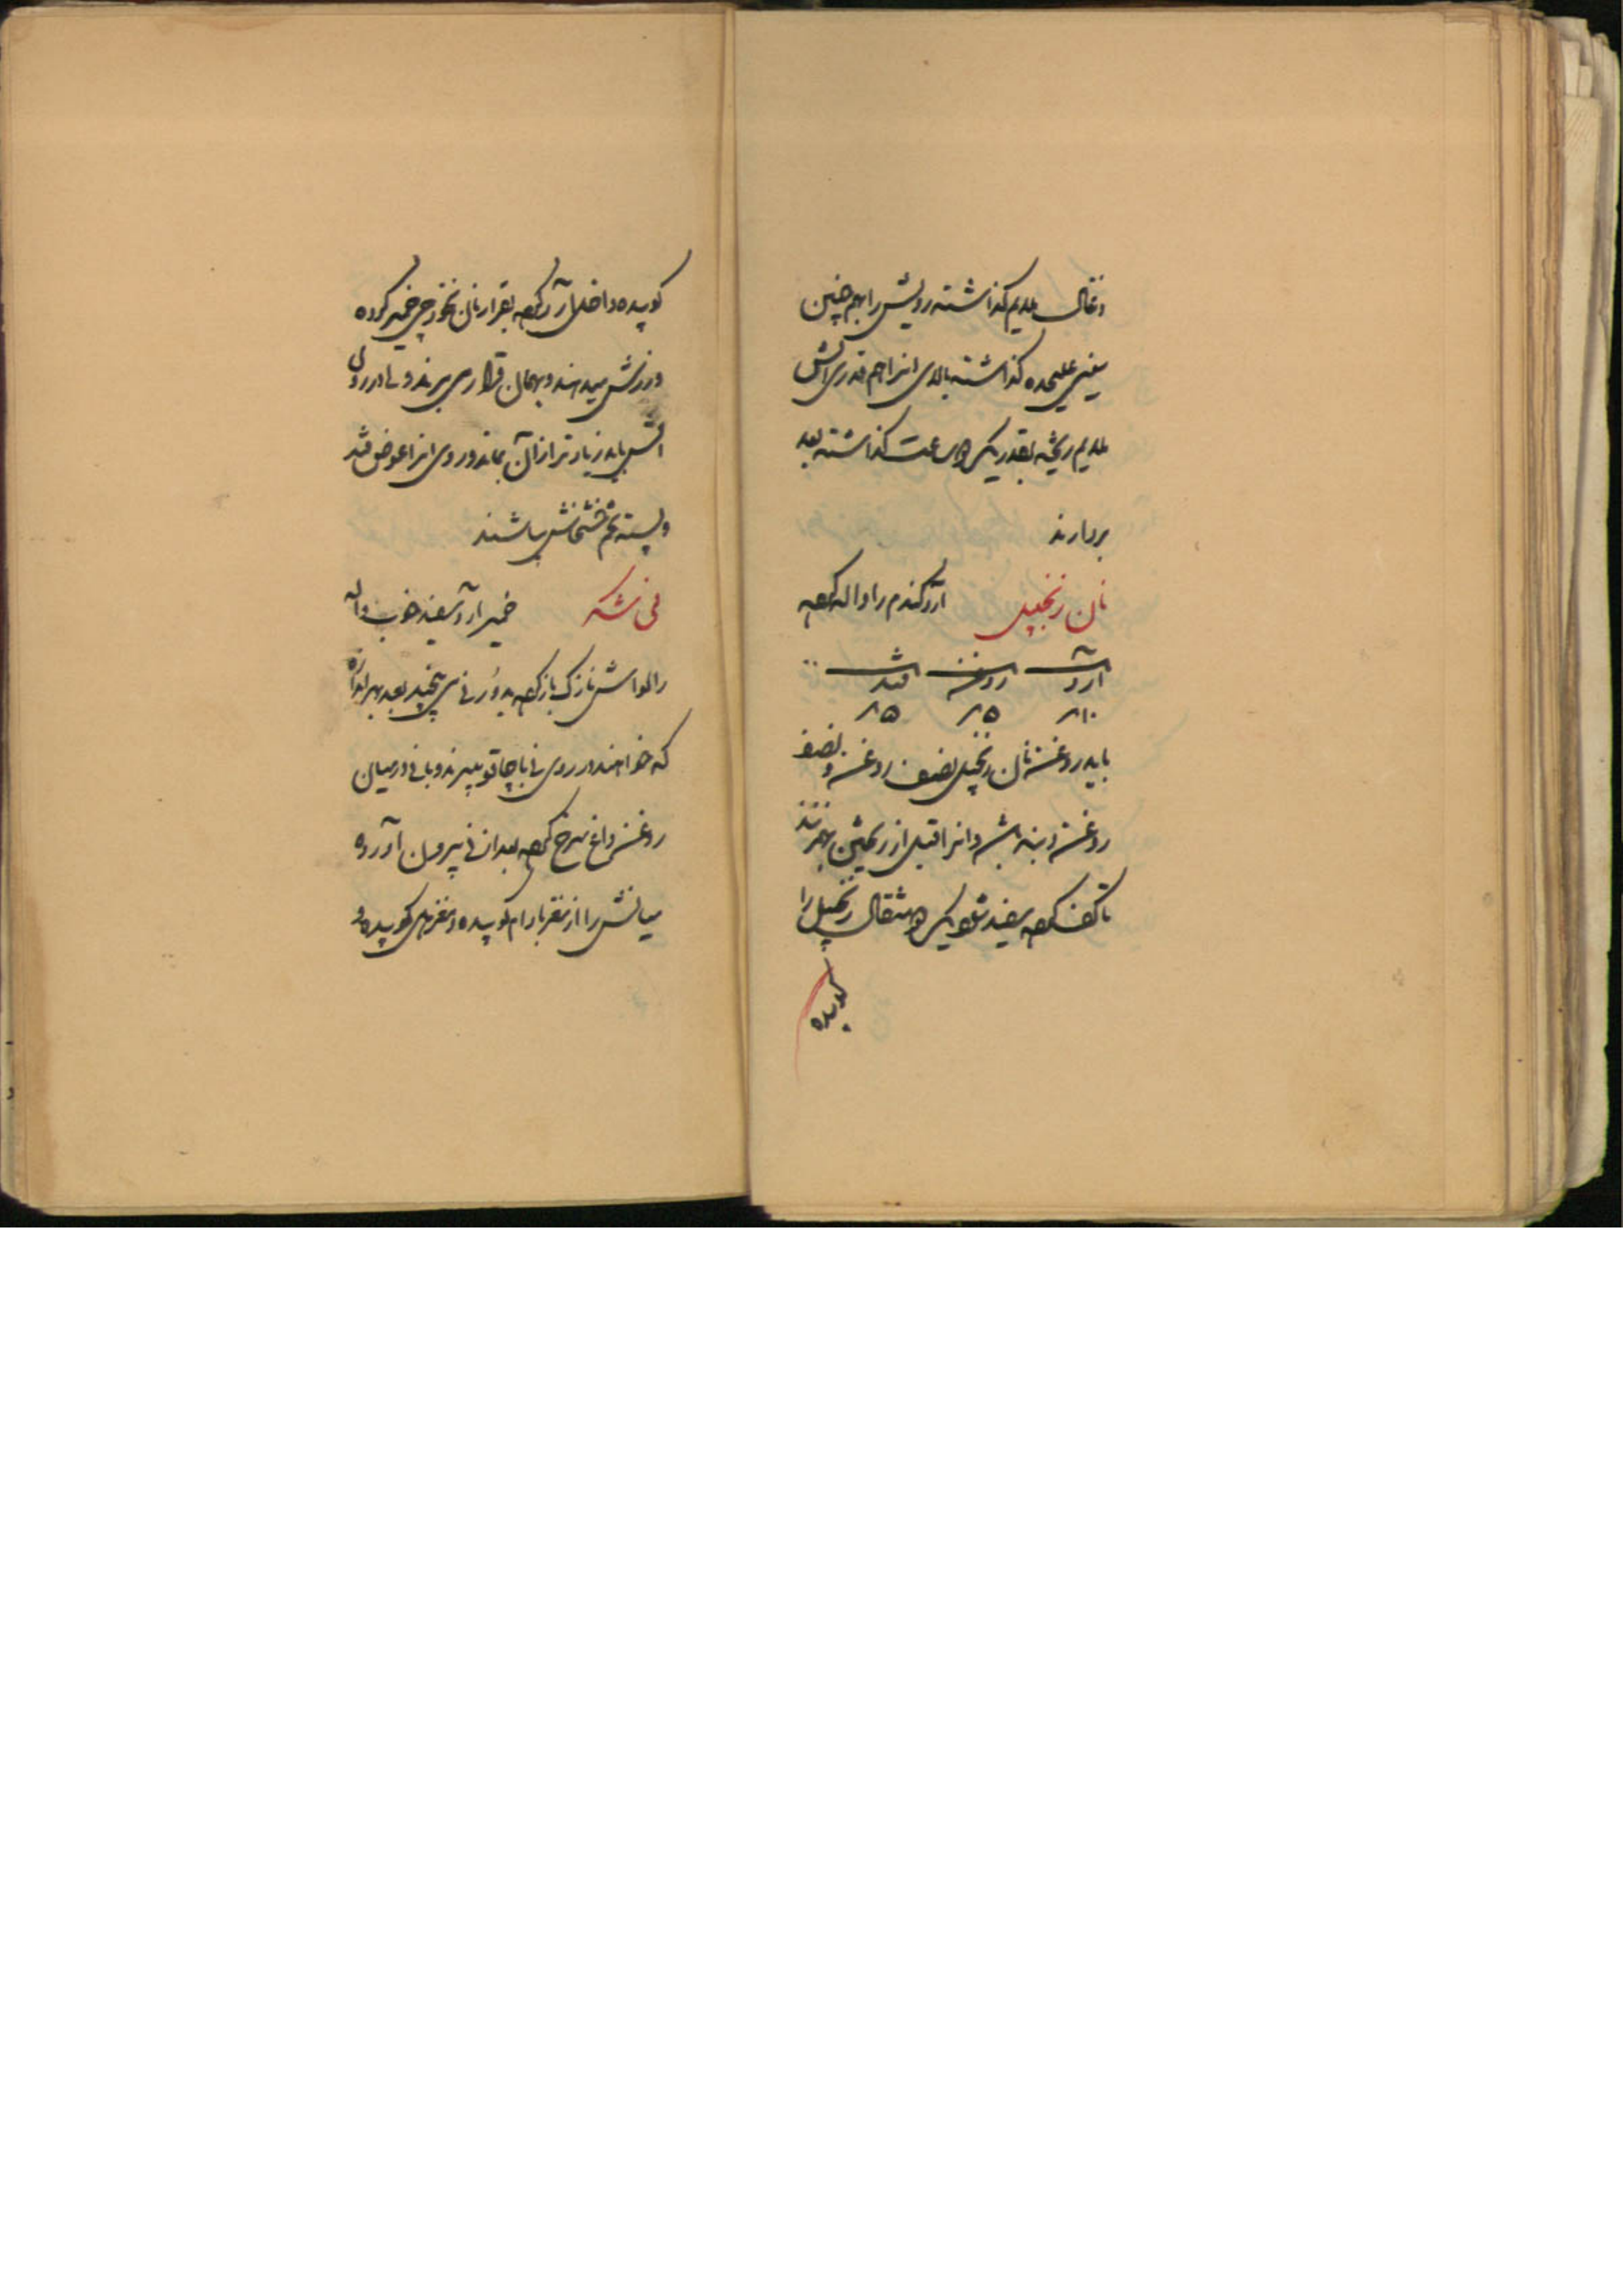 و ذغال ملایم گذاشته رویش را بهم چنین
سینی علیحده گذاشته بالای انرا هم قدری اتش
ملایم ریخته بقدر یک ساعت گذاشته بعد
بردارند
نان زنجبیل ارد گندم را واله کرده
ارد روغن قند
۱۰ ۵ ۵
باید روغن نان زنجبیل نصف روغن و نصف
روغن دنبه باشد و انرا قبل از ریختن بهم زنند
تا کف کرده سفید شود یک مثقال زنجبیل را
کوبیده
کوبیده داخل آرد کرده بقرار نان نخودچی خمیر کرده
ورزش میدهند و بهمان قرار می برند ولی در روی
اتش باید زیادتر از آن بماند و روی انرا عوض قند
و پسته تخم خشخاش بپاشند
خمیر ارد سفید خوب واله
را لواش نازک باز کرده بدور نی می پیچند بعد بهر اندازه
که خواهند در روی نی با چاقو ببرند و با نی در میان
روغن داغ سرخ کرده بعد از نی بیرون آورده
میانش را از مغز بادام کوبیده و مغز کوبیده و